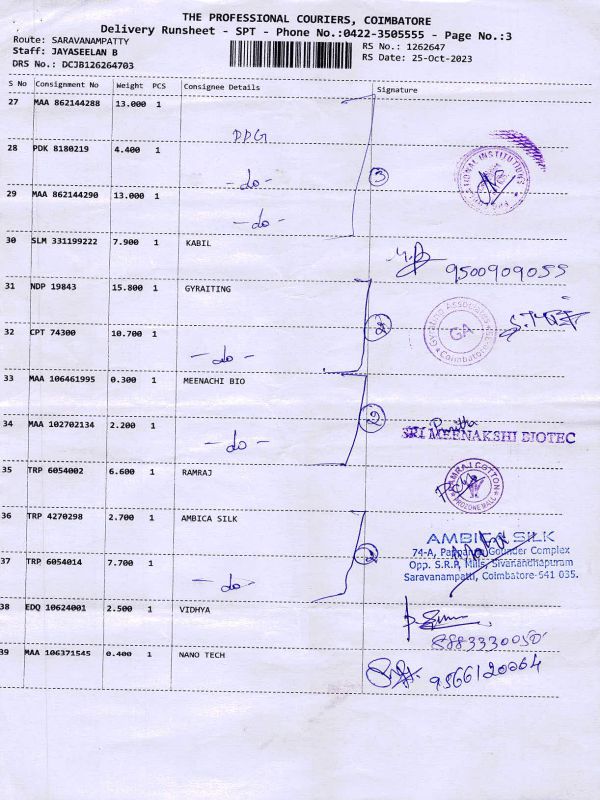 THE PROFESSIONAL COURIERS, COIMBATORE
Delivery Runsheet - SPT - Phone No.:0422-3505555 - Page No.:3
Route: SARAVANAMPATTY
Staff: JAYASEELAN B
DRS No.: DCJB126264703
RS No.: 1262647
RS Date: 25-Oct-2023
S No Consignment No Weight PCS Consignee Details Signature
27 MAA 862144288 13.000 1
DPG
28 PDK 8180219 4.400 1
-do-
29 MAA 862144290 13.000 1
-do-
3
30 SLM 331199222 7.900 1 KABIL
9500909055
31 NDP 19843 15.800 1 GYRAITING
GA
Coimbatore
32 CPT 74300 10.700 1
-do-
33 MAA 106461995 0.300 1 MEENACHI BIO
34 MAA 102702134 2.200 1
-do-
SRI MEENAKSHI BIOTEC
35 TRP 6054002 6.600 1 RAMRAJ
RAMRAJ COTTON
PROZONE MALL
36 TRP 4270298 2.700 1 AMBICA SILK
AMBICA SILK
74-A, Gounder Complex
Opp. S.R.P. Mills, Sivanandhapuram
Saravanampatti, Coimbatore-541 035.
37 TRP 6054014 7.700 1
-do-
38 EDQ 10624001 2.500 1 VIDHYA
8883330050
39 MAA 106371545 0.400 1 NANO TECH
9566120064